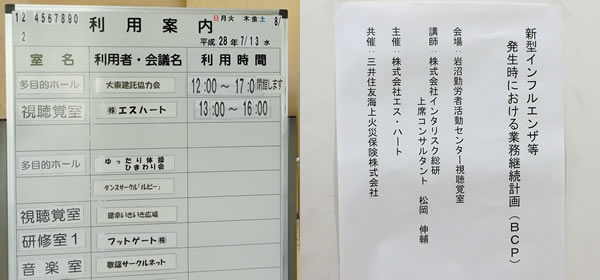 12 4567890
2
利用案内
日月火 木金土
8/
平成 28年 7/13 水
室名
利用者・会議名
利用時間
多目的ホール
大東建託協力会
12:00～17:0
開館します
視聴覚室
㈱エスハート
13:00～16:00
多目的ホール
ゆったり体操
ひまわり会
ダンスサークル「ルビー」
視聴覚室
健幸いきいき広場
研修室1
フットゲート㈱
音楽室
歌謡サークルネット
新型インフルエンザ等
発生時における業務継続計画(BCP)
会場：岩沼勤労者活動センター視聴覚室
講師：株式会社インタリスク総研
上席コンサルタント 松岡 伸輔
主催：株式会社エス・ハート
共催：三井住友海上火災保険株式会社